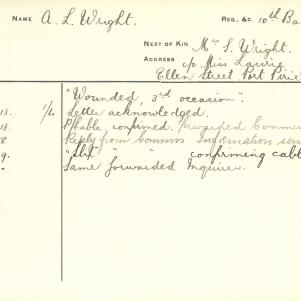 NAME A. L. Wright. REG. &C. 10th Ba
NEXT OF KIN Mrs S. Wright.
ADDRESS c/o Miss Lauris
Ellen Street Port Pirie
"Wounded, 3rd occasion".
18. 1/L Letter acknowledged.
18. P/table, confirmed, forwarded Comm
8 Reply from Commn. Information sen
9. " " " confirming cabl
" Same forwarded Inquirer.